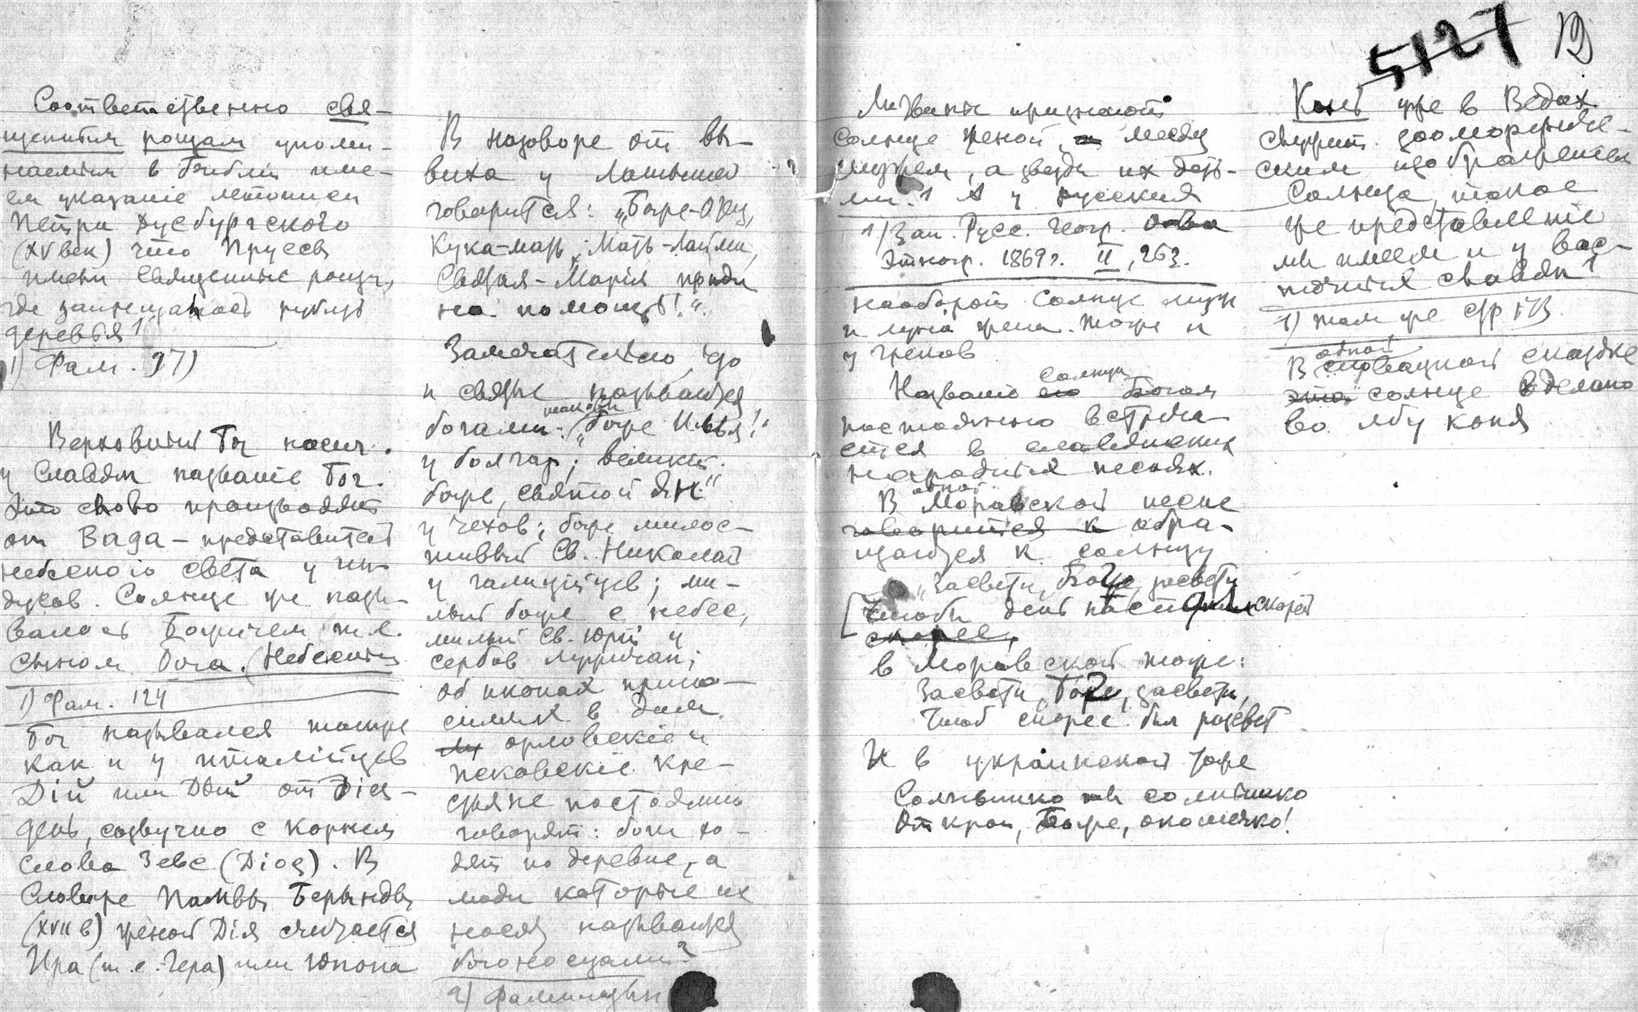 Соответственно свя-
щенным рощам упоми-
наемым в Библии име-
ем указание летописи
Петра Дусбургского
(XV век) что Пруссы
имели священные рощи,
где запрещалось рубить
деревья 1
1) Фам. 37)
Верховный Бог носит
у Славян название Бог.
Это слово производят
от Вага – представителя
небесного света у ин-
дусов. Солнце же назы-
валось Божичем т.е.
сыном Бога. (Небесным
1) Фам. 124
Бог назывался также
как и у италийцев
Дій или Дый от Dies –
день, созвучно с корнем
слова Зевс (Dios). В
Словаре Памвы Берынды
(XVII в) женой Дія считается
Ира (т.е. Гера) или Юнона
В наговоре от вы-
виха у Латышей
говорится: „Боже-Отец,
Кука-мать, Мать-Лайма,
Святая-Марія приди
на помощь!“.
Замечательно, что
и святые называются
богами: „Боже Илья!“
у болгар; великий
боже, святой Ян“
у чехов; боже милос-
тивый Св. Николай
у галицийцев; ми-
лый боже с небес,
милый Св. Юрий у
сербов лужичан;
об иконах прино-
симых в дом
орловские и
псковские кре-
стьяне постоянно
говорят: боги хо-
дят по деревне, а
люди которые их
носят называются
богоносцами 2
2) Фаминцын
5127 12
Литвины признают
солнце женой а месяц
мужем, а звезды их деть-
ми. 1 А у русских
1) Зап. Русс. Геогр. Общ
Этногр. 1869 г. II, 263.
наоборот солнце муж
и луна жена. Тоже и
у греков
Название его солнца Богом
постоянно встреча-
ется в славянских
народных песнях.
В одной Моравской песне
говорится к обра-
щаются к солнцу
„Засвети, Боже, засвети
Чтобы день настал скорей
скорее,
в Моравской тоже:
Засвети, Боже, засвети,
Чтоб скорее был рассвет
И в украинской тоже
Солнышко солнышко
Открой, Боже, окошечко!
Конь уже в Ведах
служит зооморфиче-
ским изображением
Солнца, такое
же представление
мы имеем и у вос-
точных славян 1
1) там же стр 173
В одной словацкой сказке
это солнце вделано
во лбу коня